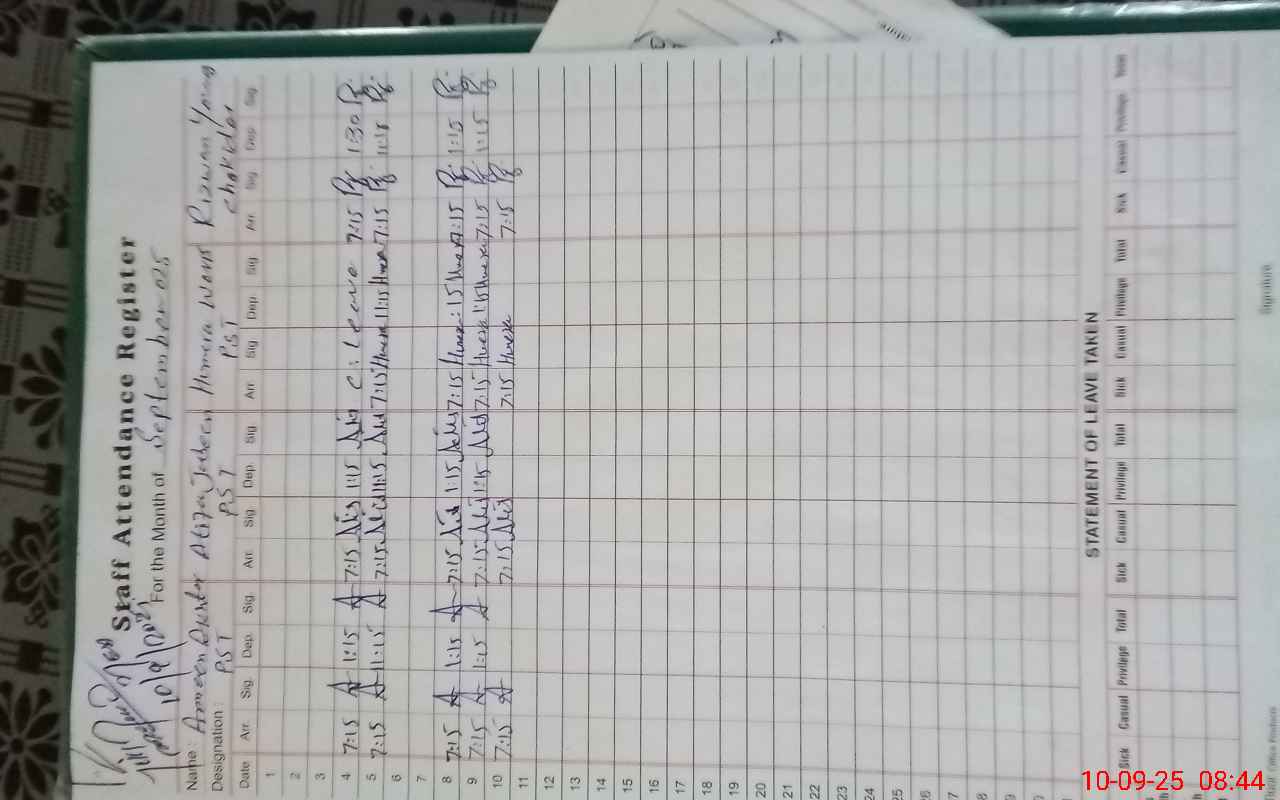 Staff Attendance Register
10/9/2025
For the Month of September 025
Name: Ameen Akhter Aliza Jabeen Humera Waris Rizwan Younas
Designation: PST PST PST Chokidar
Date Arr. Sig. Dep. Sig. Arr. Sig. Dep. Sig Arr. Sig Dep. Sig Arr. Sig Dep. Sig
1
2
3
4 7:15 1:15 7:15 1:15 C. Leave 7:15 1:30
5 7:15 11:15 7:15 11:15 7:15 Humera 11:15 Humera 7:15 11:15
6
7
8 7:15 1:15 7:15 1:15 7:15 Humera 1:15 Humera 7:15 1:15
9 7:15 1:15 7:15 1:15 7:15 Humera 1:15 Humera 7:15 1:15
10 7:15 7:15 7:15 Humera 7:15
11
12
13
14
15
16
17
18
19
20
21
22
23
24
25
26
27
28
STATEMENT OF LEAVE TAKEN
Sick Casual Privilege Total Sick Casual Privilege Total Sick Casual Privilege Total Sick Casual Privilege Total
Signature
10-09-25 08:44